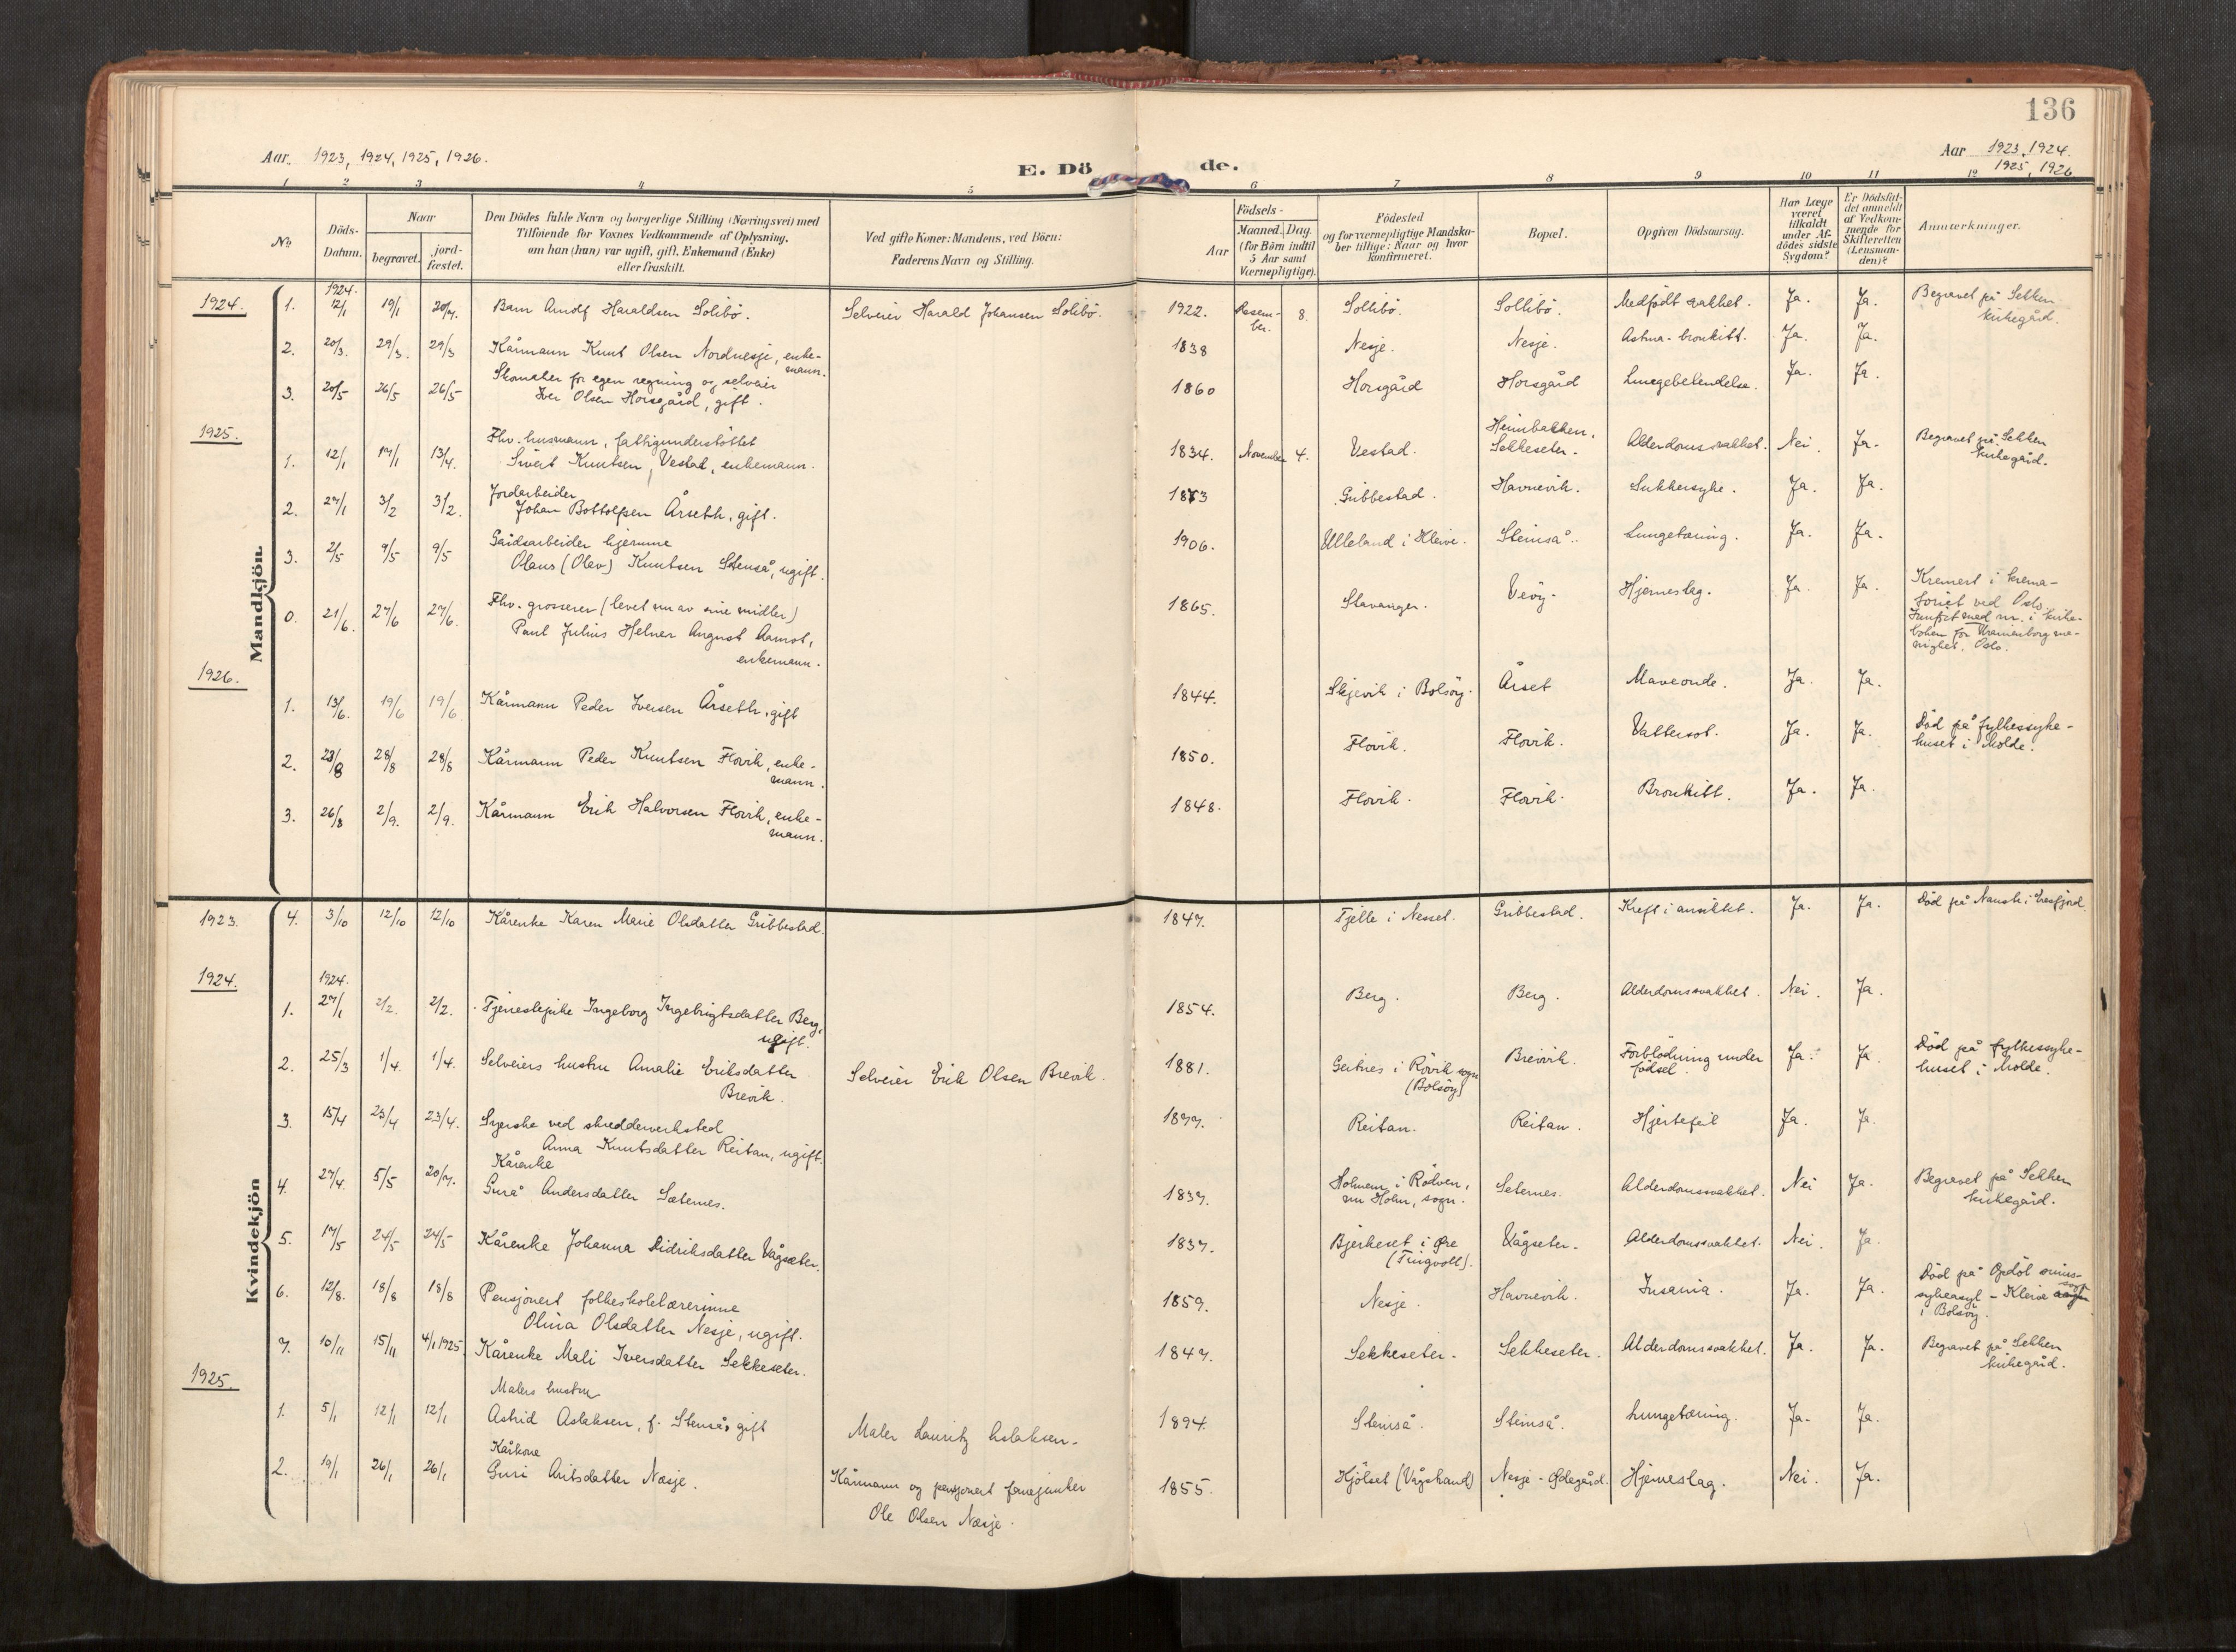 136
Aar 1923, 1924, 1925, 1926.
E. Dö de.
Aar 1923, 1924.
1925, 1926
1 2 3 4 5 6 7 8 9 10 11 12
No
Döds-Datum.
Naar
begravet. jordfæstet.
Den Dödes fulde Navn og borgerlige Stilling (Næringsvei) med
Tilföiende for Voxnes Vedkommende af Oplysning,
om han (hun) var ugift, gift, Enkemand (Enke)
eller fraskilt.
Ved gifte Koner: Mandens, ved Börn:
Faderens Navn og Stilling.
Födsels-
Aar Maaned. Dag.
(for Börn indtil
5 Aar samt
Værnepligtige).
Födested
og for værnepligtige Mandska-
ber tillige: Naar og hvor
konfirmeret.
Bopæl.
Opgiven Dödsaarsag.
Har Læge
været
tilkaldt
under Af-
dödes sidste
Sygdom?
Er Dödsfal-
det anmeldt
af Vedkom-
mende for
Skifteretten
(Lensman-
den)?
Anmærkninger.
Mandkjön.
1924. 1924.
1. 12/1 19/1 20/7. Barn Arnolf Haraldsen Solibö. Selveier Harald Johansen Solibö. 1922. Desem-
ber. 8. Sollibö. Sollibö. Medfödt svakhet. Ja. Ja. Begravet på Sekken
kirkegård.
2. 20/3. 29/3. 29/3 Kårmann Knut Olsen Nordnesje, enke-
mann. 1838 Nesje. Nesje. Astma-bronkitt. Ja. Ja.
3. 20/5 26/5 26/5 Skomaker for egen regning og selveier
Iver Olsen Horsgård, gift. 1860 Horsgård Horsgård Lungebetendelse. Ja. Ja.
1925.
1. 12/1 17/1 13/4. Fhv. husmann, fattigunderstöttet
Sivert Knutsen, Vestad, enkemann. 1834. November 4. Vestad. Heimbakken,
Sekkeseter. Alderdomssvakhet. Nei. Ja. Begravet på Sekken
kirkegård.
2. 27/1 3/2 3/2. Jordarbeider
Johan Bottolfsen Årseth, gift. 1873 Gribbestad. Havnevik. Sukkersyke. Ja. Ja.
3. 2/5 9/5 9/5 Gårdsarbeider hjemme
Olaus (Olav) Knutsen Stenså, ugift. 1906. Ulleland i Kleive. Steinså. Lungetæring. Ja. Ja.
0. 21/6. 27/6 27/6. Fhv. grosserer (levet nu av sine midler)
Paul Julius Helner August Aamot,
enkemann. 1865. Stavanger. Veöy. Hjerneslag. Ja. Ja. Kremert i krema-
toriet ved Oslo.
Innfört med nr. i kirke-
boken for Uranienborg me-
nighet, Oslo.
1926.
1. 13/6. 19/6 19/6. Kårmann Peder Iversen Årseth, gift 1844. Skjevik i Bolsöy. Årset Maveonde. Ja. Ja.
2. 23/8 28/8 28/8 Kårmann Peder Knutsen Flovik, enke-
mann. 1850. Flovik. Flovik. Vattersot. Ja. Ja. Död på fylkessyke-
huset i Molde.
3. 26/8 2/9. 2/9. Kårmann Erik Halvorsen Flovik, enke-
mann. 1848. Flovik. Flovik. Bronkitt. Ja. Ja.
Kvindekjön
1923. 4. 3/10 12/10 12/10 Kårenke Karen Marie Olsdatter Gribbestad. 1847. Tjelle i Nesset. Gribbestad. Kreft i ansiktet. Ja. Ja. Död på i Eresfjord.
1924. 1924.
1. 27/1 2/2. 2/2. Tjenestepike Ingeborg Ingebrigtsdatter Berg,
ugift. 1854. Berg. Berg. Alderdomssvakhet. Nei. Ja.
2. 25/3 1/4. 1/4. Selveiers hustru Amalie Eriksdatter
Brevik. Selveier Erik Olsen Brevik. 1881. Geitnes i Rövik sogn
(Bolsöy) Breivik. Forblödning under
födsel. Ja. Ja Död på fylkessyke-
huset i Molde.
3. 15/4 23/4 23/4. Syerske ved skredderverksted
Anna Knutsdatter Reitan, ugift. 1877. Reitan. Reitan. Hjertefeil Ja. Ja.
4. 27/4. 5/5 20/7. Kårenke
Gurå Andersdatter Sæternes. 1837. Holmem i Rödven,
nu Holm, sogn. Seternes. Alderdomssvakhet. Nei Ja. Begravet på Sekken
kirkegård.
5. 17/5 24/5 24/5 Kårenke Johanna Didriksdatter Vågsæter. 1837. Bjerkeset i Øre
(Tingvoll). Vågseter. Alderdomssvakhet. Nei. Ja.
6. 12/8. 18/8 18/8 Pensjonert folkeskolelærerinne
Olina Olsdatter Nesje, ugift. 1859. Nesje. Havnevik. Insania. Ja. Ja. Död på Opdöl sinns-
sykeasyl - Kleive sogn
i Bolsöy.
7. 10/11 15/11 4/1 1925. Kårenke Mali Iversdatter Sekkeseter. 1847. Sekkeseter. Sekkeseter. Alderdomssvakhet. Ja. Ja. Begravet på Sekken
kirkegård.
1925.
1. 5/1 12/1 12/1 Malers hustru
Astrid Aslaksen, f. Stenså, gift Maler Lauritz Aslaksen. 1894. Steinså. Steinså. Lungetæring. Ja. Ja.
2. 19/1 26/1 26/1 Kårkone
Guri Aritsdatter Næsje. Kårmann og pensjonert
Ole Olsen Næsje. 1855. Hjölset (Vågstrand) Nesje-Ødegård. Hjerneslag. Nei. Ja.